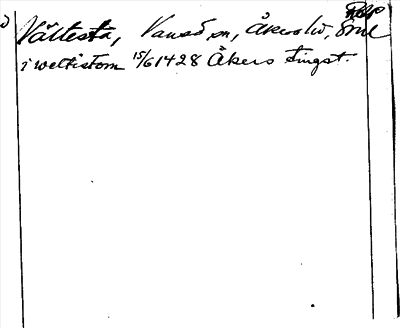 Vättesta, Vansö sn, Åkers hd, Srml
i wettistom 15/6 1428 Åkers tingst.